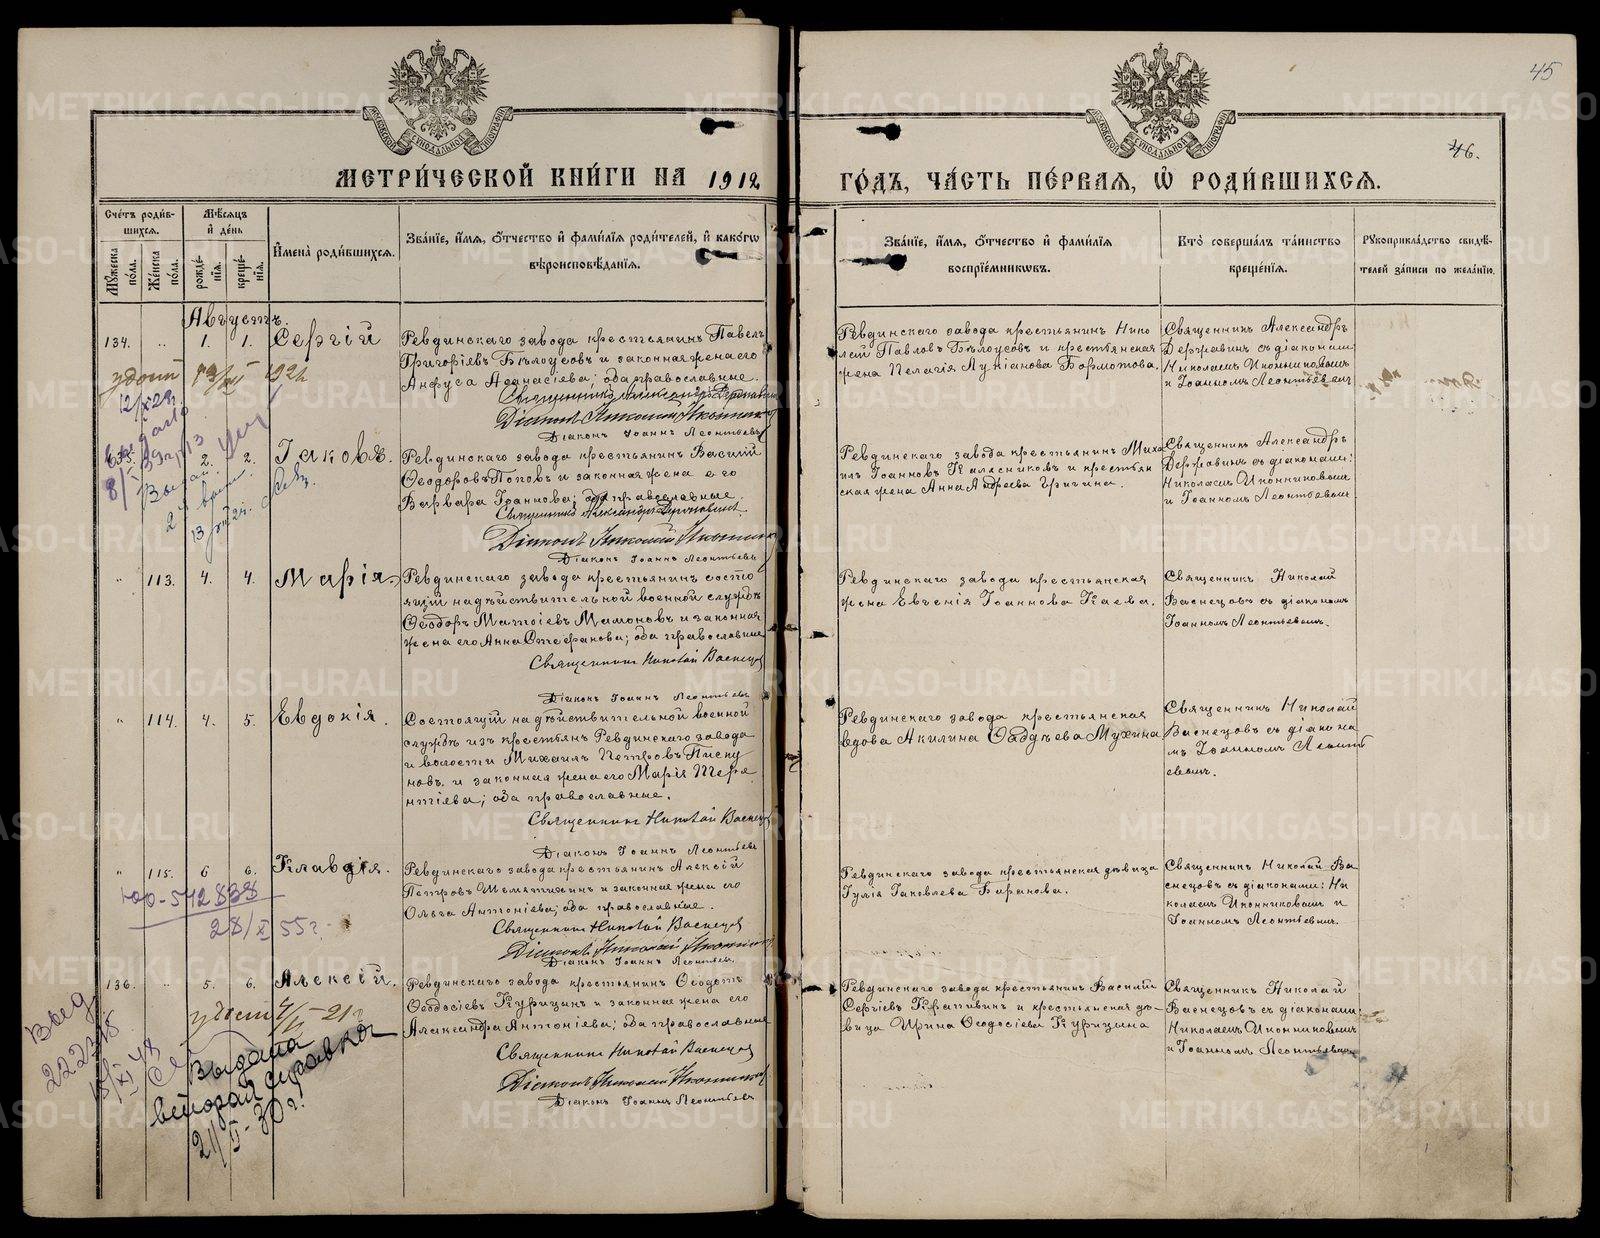 45
46.
МЕТРИ́ЧЕСКОЙ КНИ́ГИ НА 1912
ГО́ДЪ, ЧА́СТЬ ПЕ́РВАЯ, Ѡ РОДИ́ВШИХСЯ.
Сче́тъ роди́вшихся.
Мѣ́сяцъ и де́нь
Му́жеска по́ла.
Же́нска по́ла.
рожде́нія.
креще́нія.
И́мена роди́вшихся.
Зва́ніе, и́мя, о́тчество и фами́лія роди́телей, и како́гѡ
вѣроисповѣ́данія.
Зва́ніе, и́мя, о́тчество и фами́лія
воспріе́мникѡвъ.
Кто̀ соверша́лъ та́инство
креще́нія.
Рꙋкоприкла́дство свидѣ́-
телей за́писи по жела́нію.
Августъ.
134. 1. 1. Сергій
Ревдинскаго завода крестьянинъ Павелъ
Григоріевъ Бѣлоусовъ и законная жена его
Анфуса Аѳанасіева; оба православные.
Священникъ Александръ Державинъ
Діаконъ Николай Иконниковъ
Діаконъ Іоаннъ Леонтьевъ
Ревдинскаго завода крестьянинъ Нико
лай Павловъ Бѣлоусовъ и крестьянская
жена Пелагія Лукіанова Бормотова.
Священникъ Александръ
Державинъ съ діаконами
Николаемъ Иконниковымъ
и Іоанномъ Леонтьевымъ
135. 2. 2. Іаковъ.
Ревдинскаго завода крестьянинъ Василій
Ѳеодоровъ Поповъ и законная жена его
Варвара Іоаннова; оба православные.
Священникъ Александръ Державинъ
Діаконъ Николай Иконниковъ
Діаконъ Іоаннъ Леонтьевъ
Ревдинскаго завода крестьянинъ Миха
илъ Іоанновъ Калясниковъ и крестьян
ская жена Анна Андреева
Священникъ Александръ
Державинъ съ діаконами:
Николаемъ Иконниковымъ
и Іоанномъ Леонтьевымъ
" 113. 4. 4. Марія.
Ревдинскаго завода крестьянинъ состо
ящій на дѣйствительной военной службѣ
Ѳеодоръ Матѳіевъ Мамоновъ и законная
жена его Анна Стефанова; оба православные
Священникъ Николай Васнецовъ
Діаконъ Іоаннъ Леонтьевъ
Ревдинскаго завода крестьянская
жена Евгенія Іоаннова Каева.
Священникъ Николай
Васнецовъ съ діакономъ
Іоанномъ Леонтьевымъ.
" 114. 4. 5. Евдокія.
Состоящій на дѣйствительной военной
службѣ изъ крестьянъ Ревдинскаго завода
и волости Михаилъ Петровъ Писку
новъ и законная жена его Марія Тере
нтіева; оба православные.
Священникъ Николай Васнецовъ
Діаконъ Іоаннъ Леонтьевъ
Ревдинскаго завода крестьянская
вдова Акилина Овдѣева Мухина
Священникъ Николай
Васнецовъ съ діакона
мъ Іоанномъ Леонть
евымъ.
" 115. 6 6. Клавдія.
Ю0-542838
28/X 55г.
Ревдинскаго завода крестьянинъ Алексій
Петровъ Шемятихинъ и законная жена его
Ольга Антоніева; оба православные.
Священникъ Николай Васнецовъ
Діаконъ Николай Иконниковъ
Діаконъ Іоаннъ Леонтьевъ
Ревдинскаго завода крестьянская дѣвица
Іулія Іаковлева Баранова.
Священникъ Николай Ва
снецовъ съ діаконами: Ни
колаемъ Иконниковымъ и
Іоанномъ Леонтьевымъ.
136. 5. 6. Алексій.
Выдана
второй справка
21/II-30 г.
Ревдинскаго завода крестьянинъ Ѳеодотъ
Ѳеодосіевъ Курицинъ и законная жена его
Александра Антоніева; оба православные
Священникъ Николай Васнецовъ
Діаконъ Николай Иконниковъ
Діаконъ Іоаннъ Леонтьевъ
Ревдинскаго завода крестьянинъ Василій
Сергіевъ Крапивинъ и крестьянская дѣ-
вица Ирина Ѳеодосіева Курицина
Священникъ Николай
Васнецовъ съ діаконами
Николаемъ Иконниковымъ
и Іоанномъ Леонтьевымъ
METRIKI.GASO-URAL.RU